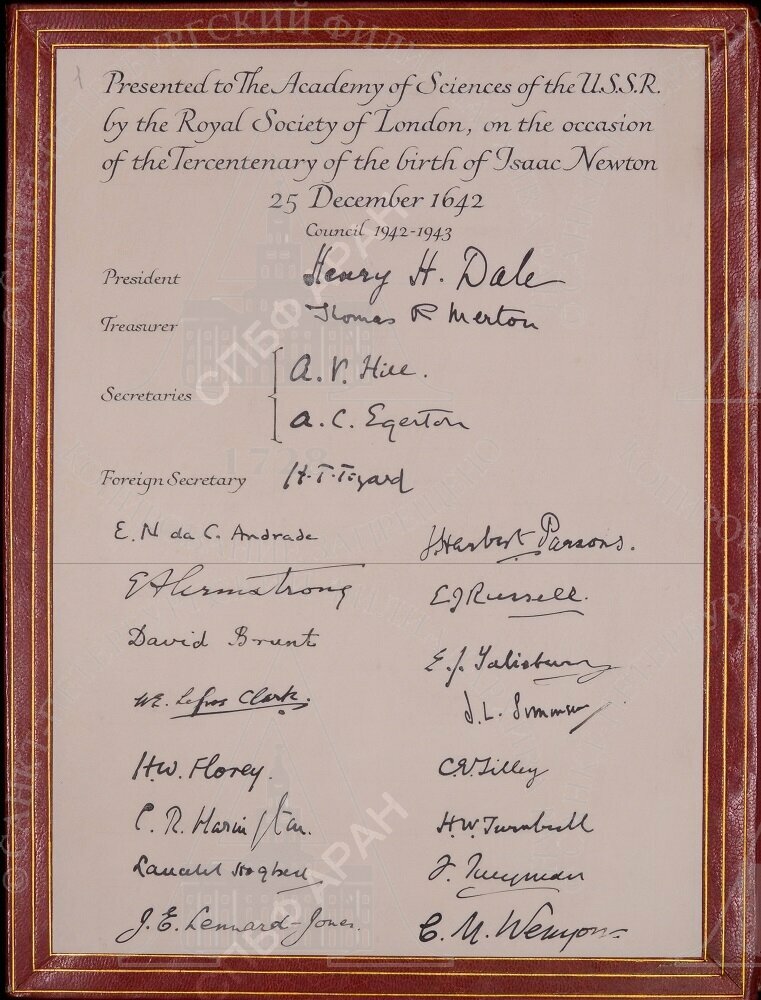 Presented to The Academy of Sciences of the U.S.S.R.
by the Royal Society of London, on the occasion
of the Tercentenary of the birth of Isaac Newton
25 December 1642
Council 1942-1943
President Henry H. Dale
Treasurer Thomas R Merton
Secretaries
A. V. Hill.
A. C. Egerton
Foreign Secretary H. T. Tizard
E. N da C. Andrade
J Herbert Parsons.
E F Armstrong
E J Russell.
David Brunt
E. J. Salisbury
W E. Le Gros Clark.
J. L. Simonsen
H. W. Florey.
C E Tilley
C. R. Harington.
H. W. Turnbull
Lancelot Hogben
F. Twyman
J. E. Lennard-Jones.
C. M. Wenyon
СПБФ АРАН
СПБФ АРАН
1728